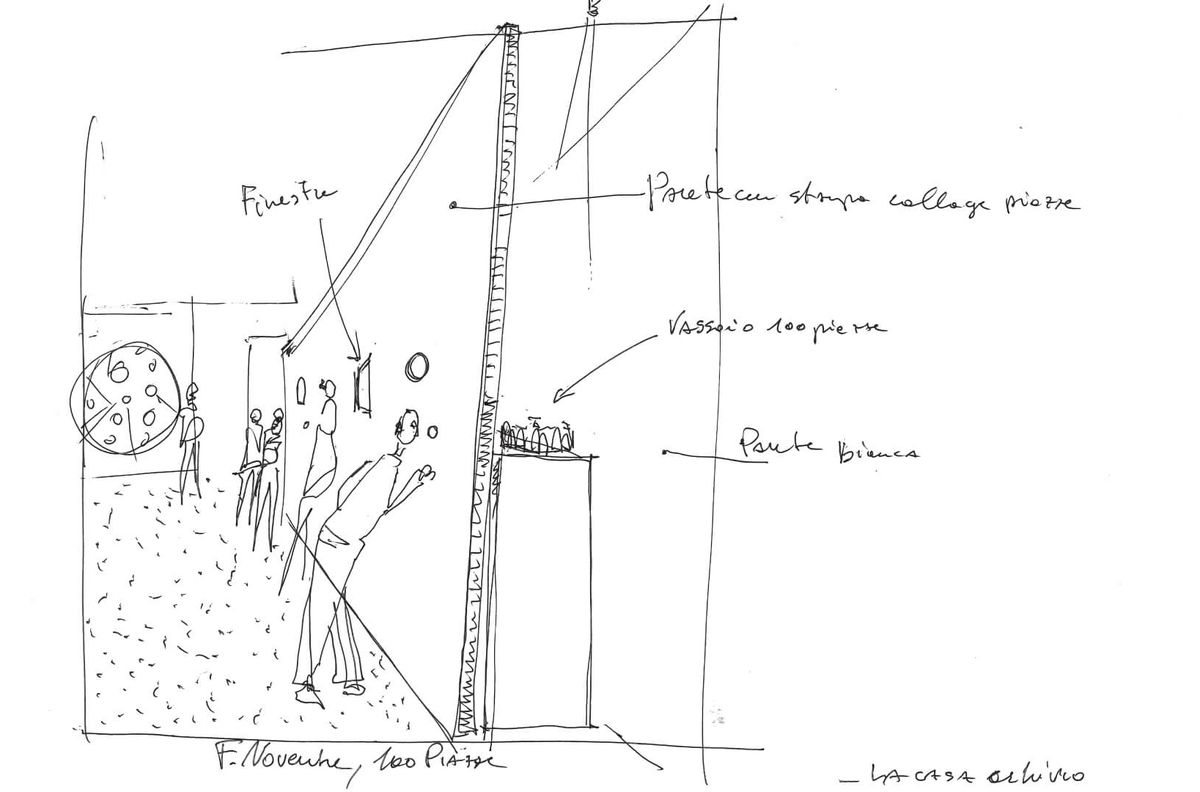 Finestre
Parete con stampa collage piazze
Vassoio 100 piazze
Parete bianca
F. Novembre, 100 PIAZZE
— LA CASA archivio